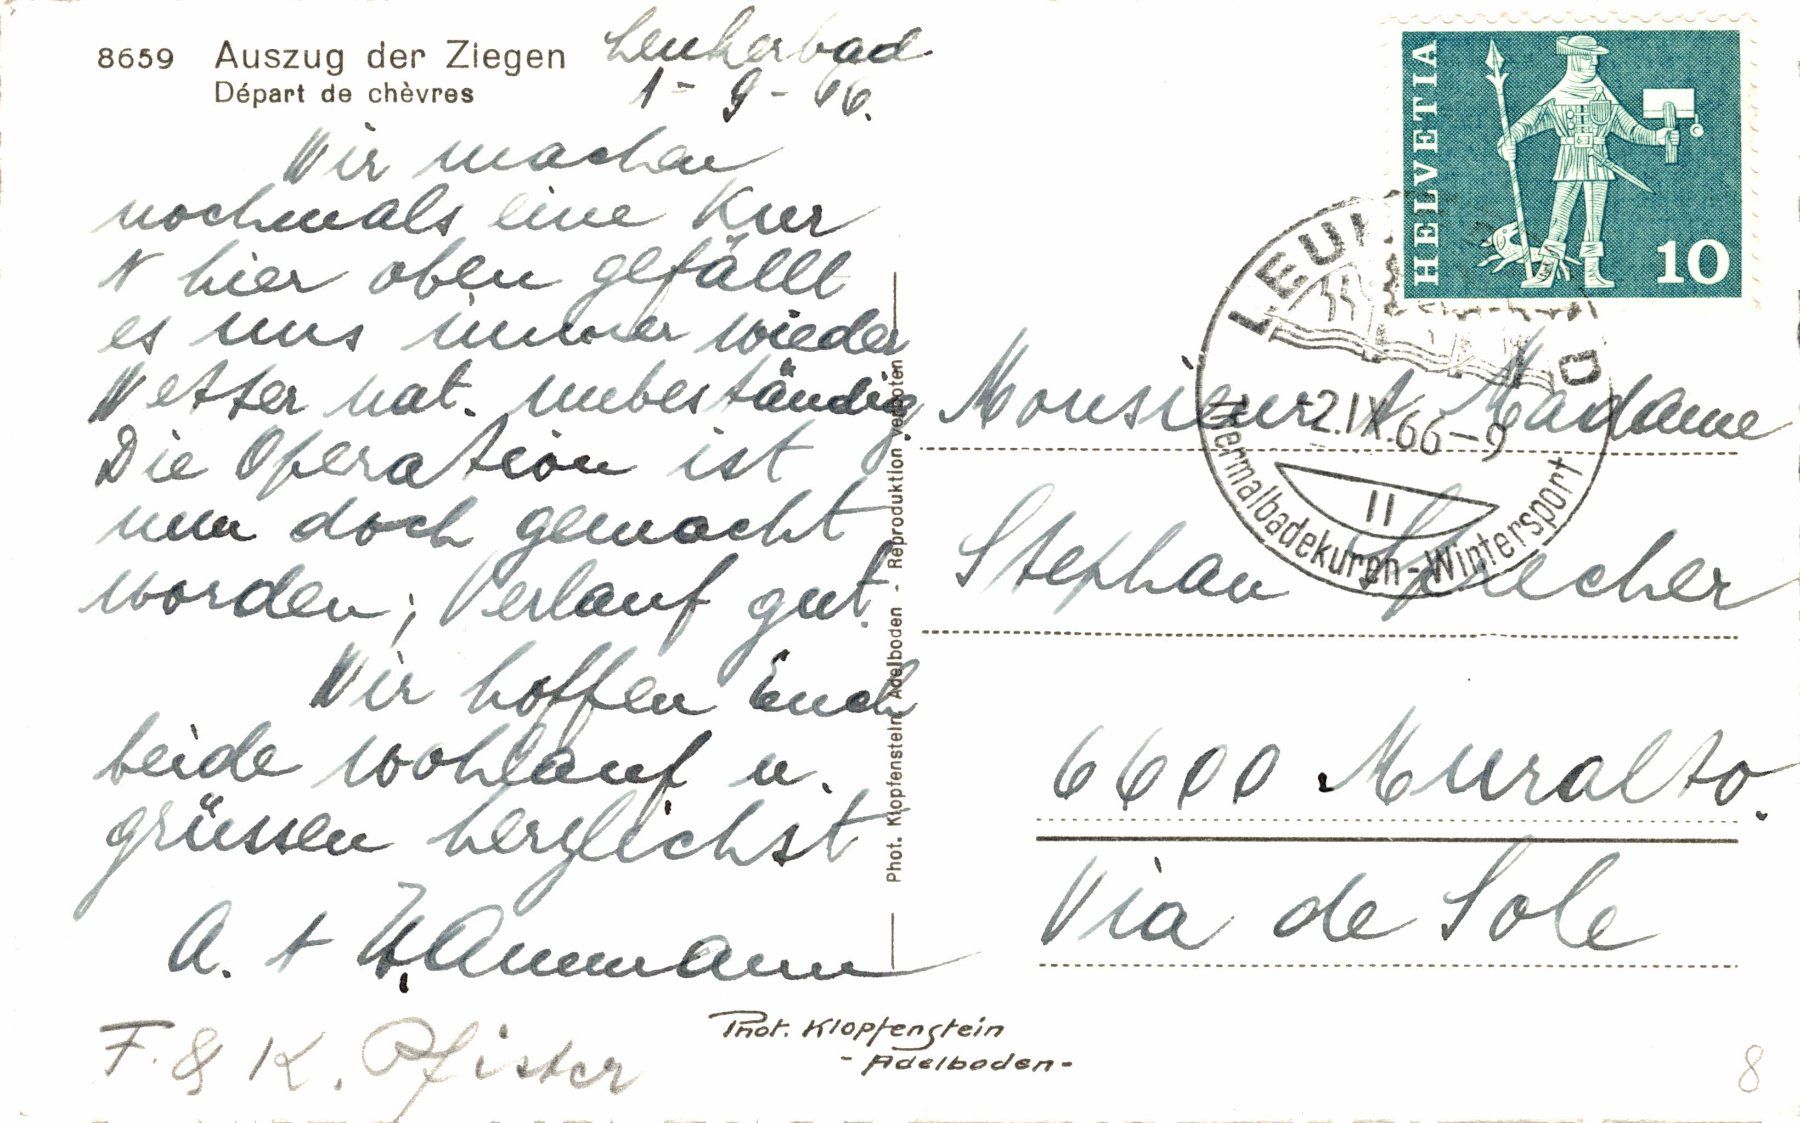 8659 Auszug der Ziegen
Départ de chèvres
Leukerbad
1-9-66.
Wir machen
nochmals eine Kur
+ hier oben gefällt
es uns immer wieder
Wetter nat. unbeständig.
Die Operation ist
nun doch gemacht
worden; Verlauf gut.
Wir hoffen Euch
beide wohlauf u.
grüssen herzlichst
A. + H. Ammann
F. & K. Pfister
Phot. Klopfenstein, Adelboden - Reproduktion verboten
Phot. Klopfenstein
- Adelboden -
HELVETIA
10
LEUK D
-2.IX.66-9
II
Thermalbadekuren-Wintersport
Monsieur + Madame
Stephan
6600 Muralto.
Via de Sole
8